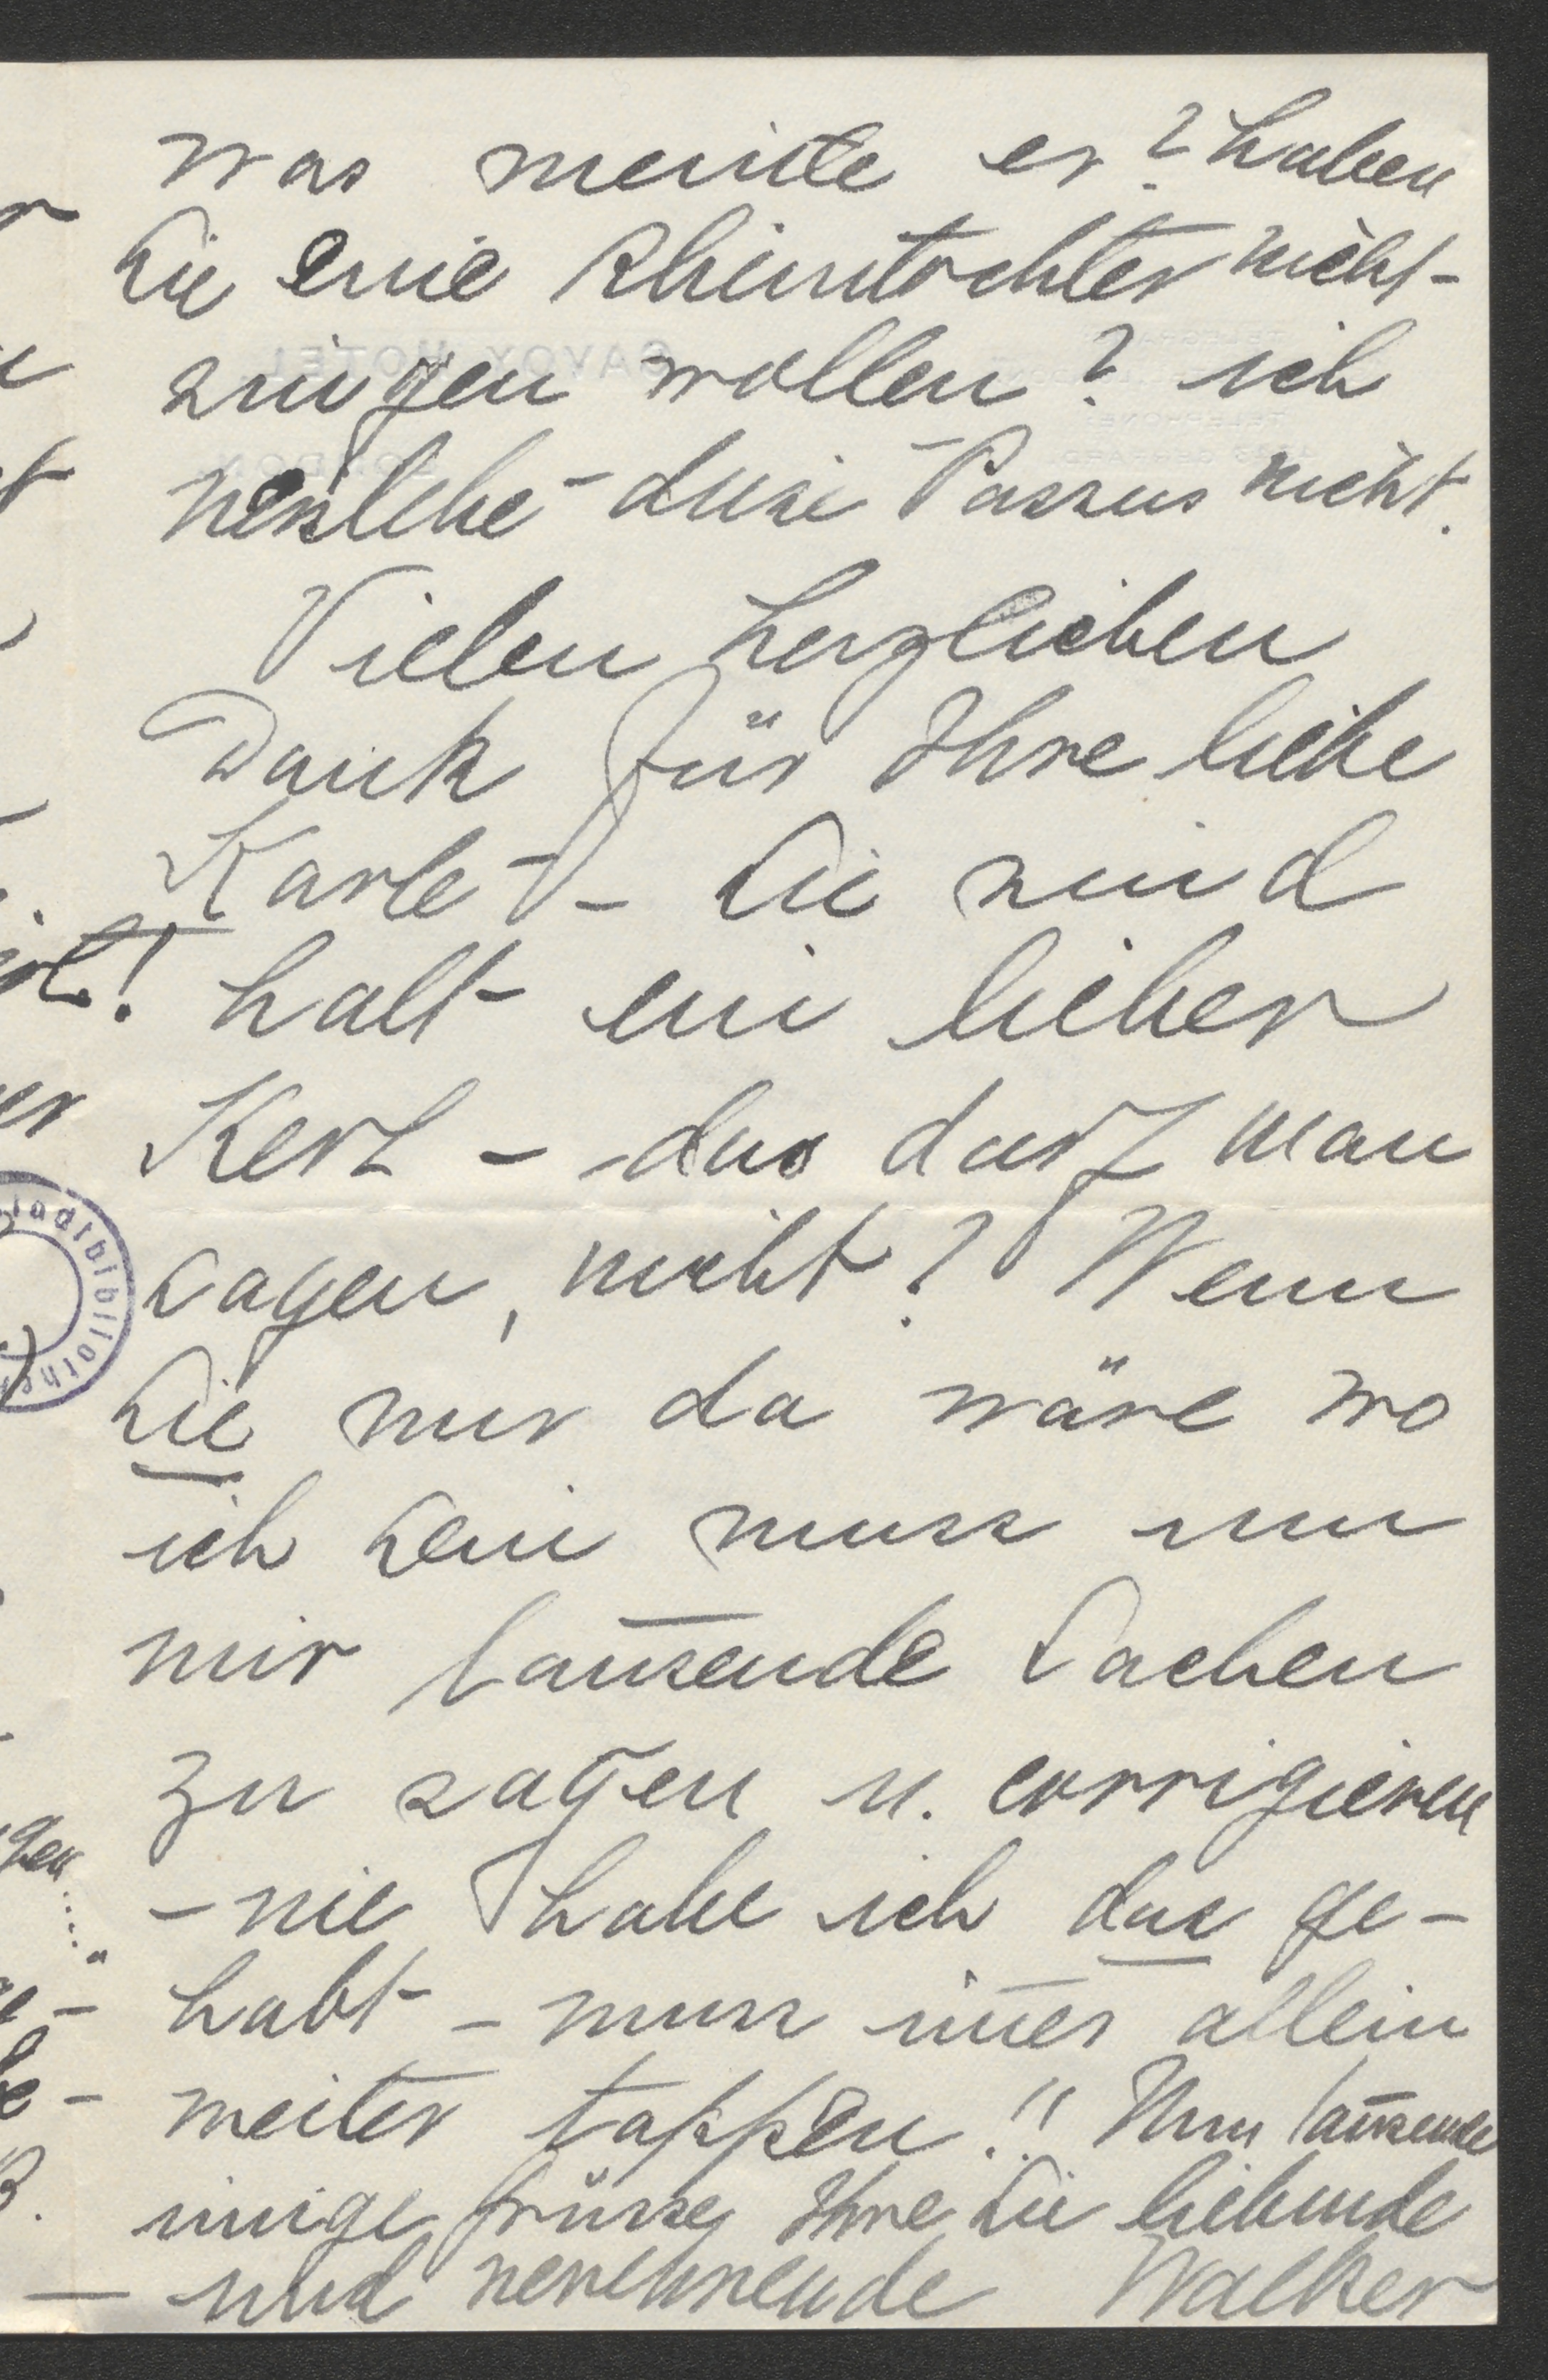 was meinte er? haben
Sie eine Rheintochter nicht
singen wollen? ich
verstehe diese Passus nicht.
Vielen herzlichen
Dank für Ihre liebe
Karte – Sie sind
halt ein lieber
Kerl – das darf man
sagen, nicht? Wenn
Sie nur da wäre wo
ich sein muss um
mir tausende Sachen
zu sagen u. corrigieren
– nie habe ich das ge-
habt – muss im̅er allein
weiter tappen!! Nun tausende
innige Grüsse Ihre Sie liebende
und verehrende Walker
SAVOY HOTEL
LONDON
Stadtbibliothek